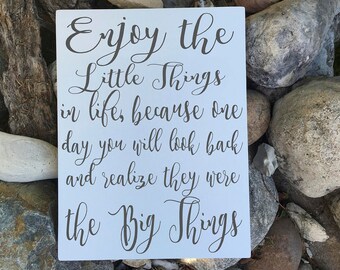 Enjoy the
Little Things
in life, because one
day you will look back
and realize they were
the Big Things